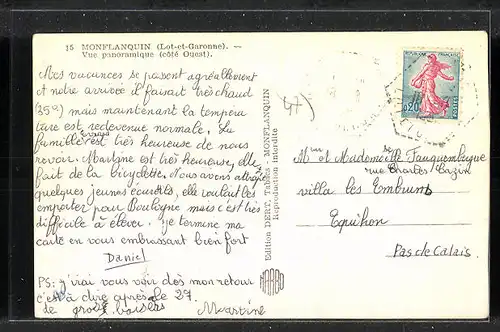 15 MONFLANQUIN (Lot-et-Garonne). —
Vue panoramique (côté Ouest).
Mes vacances se passent agréablement
et notre arrivée il faisait très chaud
(35°) mais maintenant la tempéra
ture est redevenue normale. La
famille est très heureuse de nous
revoir. Martine est très heureuse, elle
fait de la bicyclette. Nous avons attrapé
quelques jeunes écureuils, elle voulait les
emporter pour Boulogne mais c'est très
difficile à élever. Je termine ma
carte en vous embrassant bien fort
Daniel
PS: j'irai vous voir dès mon retour
c'est à dire après le 27.
de gros baisers Martine
Edition DERT, Tabacs - MONFLANQUIN
Reproduction interdite
47
REPUBLIQUE FRANÇAISE
0,20
POSTES
Mr et Mademoiselle Fauquembergue
rue Charles Cazin
villa les Embruns
Equihen
Pas de Calais